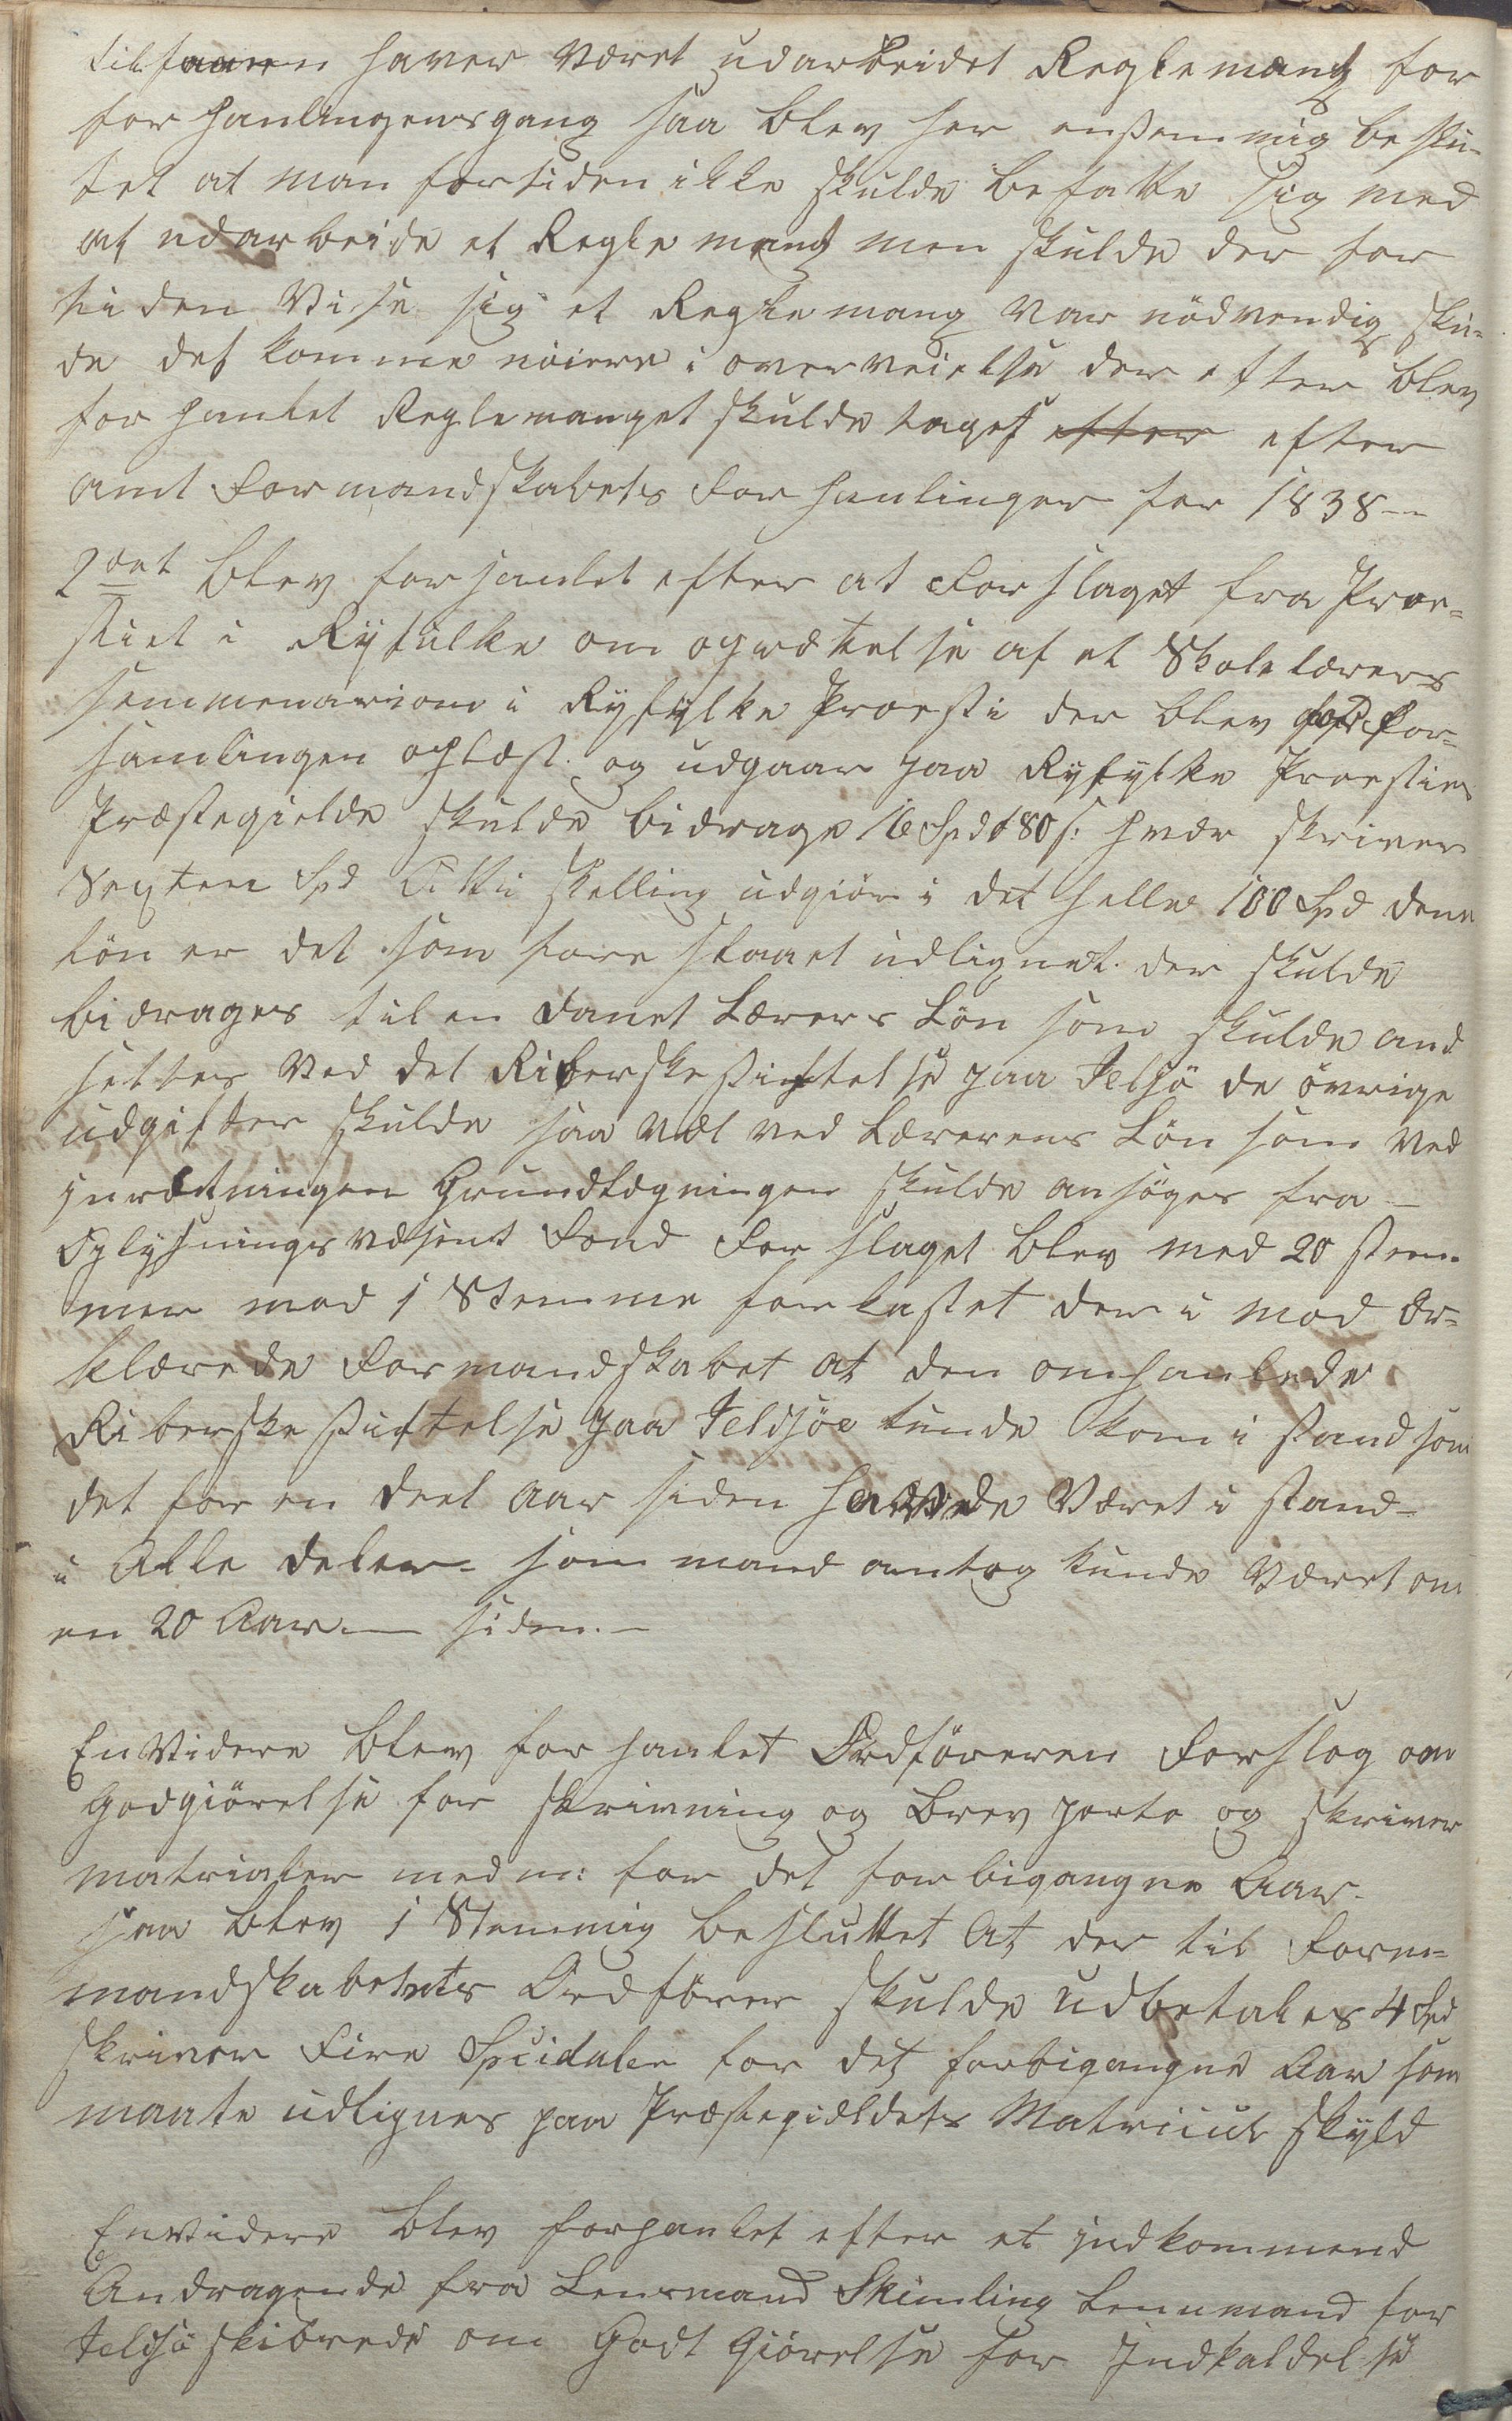 tilfaarn haver været udarbeidet Reglemang for
forhanlingensgang saa blev her enstemmig beslu-
tet at man fortiden ikke skulde befatte sig med
at udarbeide et Reglemang men skulde der for
tiden Vise sig et Reglemang var nödvendig skul-
de det komme nöiere i overveielse der efter blev
forhanlet Reglemanget skulde tages efter efter
amt Formandskabets Forhanlinger for 1838 --
2det blev forhanlet efter at Forslaget fra Proe-
stiet i Ryfulke om oprettelse af et Skolelærers
Semmenarium i Ryfylke Proesti der blev for For-
samlingen oplæst. og udgaar paa Ryfylke Proesties
Præstegielde skulde bidrage 16 Spd 80 s: hver skriver
Sexten Spd Otti skelling udgiör i det helle 100 Spd denne
lön er det som fore staaet udlignet. der skulde
bidrages til en danet Lærers Lön som skulde and
settes Ved det Riberske stiftelse paa Jelsö de övrige
udgifter skulde saa vel ved Lærerens Lön som ved
jnretningen Grundlegningen skulde ansöges fra -
Oplysningsvæsent Fond Forslaget blev med 20 stem-
mer mod 1 Stemme forkastet der i mod Er-
klærede Formandskabet at den omhanlede
Riberske stiftelse paa Jeldsöe kunde kom i stand som
det for en deel aar siden havde Været i stand -
i Alle deler - som mand antog kunde Været om
en 20 Aar - siden. -
En Videre blev forhanlet Ordföreren Forslag om
Godgiörelse for skrivning og Brev porto og skriver
matrialer med m: for det forbigangne Aar.
saa blev 1 Stemmig besluttet At der til Form-
mandskabets Ordförer skulde udbetales 4 Spd
skriver Fire Speidaler for det forbigangne Aar som
maate udlignes paa Præstegieldets Matricul skyld
En Videre blev forhanlet efter et jndkommend
Andragende fra Lensmand Skimling Lennmand for
Jelsö skibrede om Godt Giörelse for Jndkaldelse